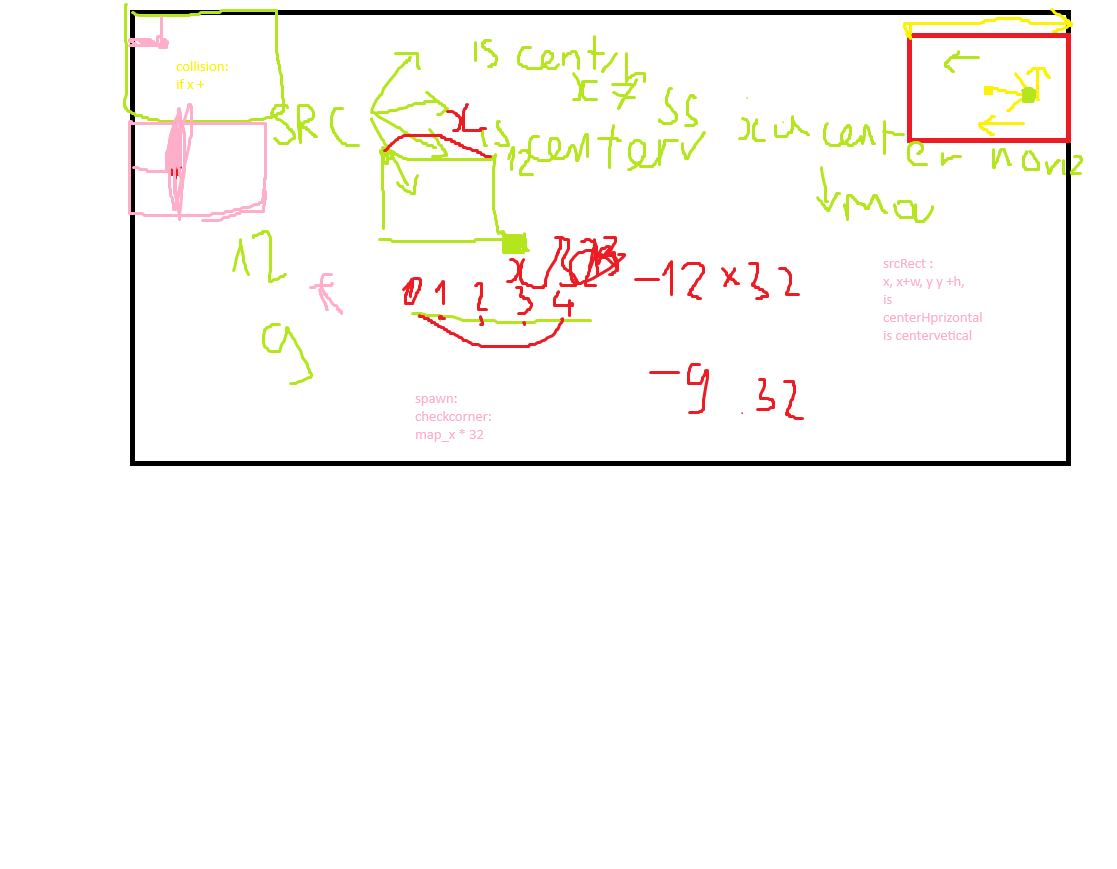 collision:
if x +
SRC
is cent
x
SS
x
is
centerv
12
x w cent
er horiz
mov
12
9
x
0 1 2 3 4
-12 x 32
-9 32
srcRect :
x, x+w, y y +h,
is
centerHprizontal
is centervetical
spawn:
checkcorner:
map_x * 32